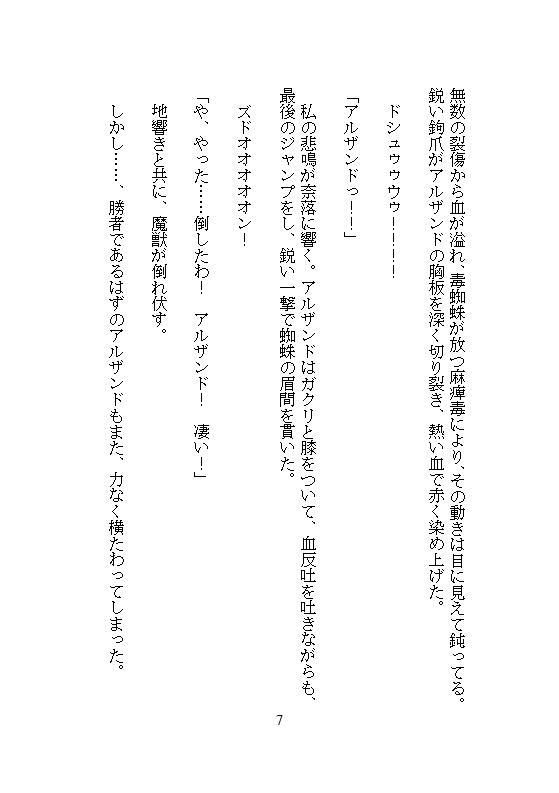 無数の裂傷から血が溢れ、毒蜘蛛が放つ麻痺毒により、その動きは目に見えて鈍ってる。
鋭い鉤爪がアルザンドの胸板を深く切り裂き、熱い血で赤く染め上げた。
ドシュゥゥウゥ！！！！
「アルザンドっ！！」
私の悲鳴が奈落に響く。アルザンドはガクリと膝をついて、血反吐を吐きながらも、
最後のジャンプをし、鋭い一撃で蜘蛛の眉間を貫いた。
ズドオオオオオン！
「や、やった……倒したわ！　アルザンド！　凄い！」
地響きと共に、魔獣が倒れ伏す。
しかし……、勝者であるはずのアルザンドもまた、力なく横たわってしまった。
7